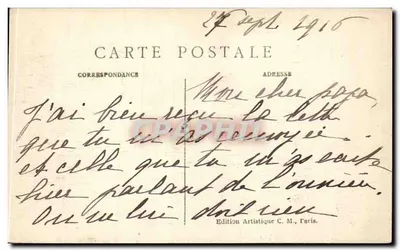 27 sept 1916
CARTE POSTALE
CORRESPONDANCE
ADRESSE
Mon cher papa,
J'ai bien reçu la lettre
que tu m'as envoyée
et celle que tu m'as
hier parlant de
On ne lui doit rien
Edition Artistique C. M., Paris.